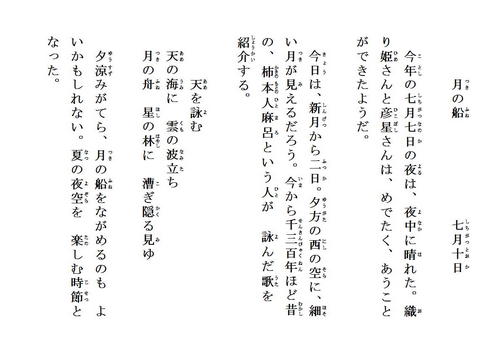 月の船 七月十日
今年の七月七日の夜は、夜中に晴れた。織
り姫さんと彦星さんは、めでたく、あうこと
ができたようだ。
今日は、新月から二日。夕方の西の空に、細
い月が見えるだろう。今から千三百年ほど昔
の、柿本人麻呂という人が 詠んだ歌を
紹介する。
天を詠む
天の海に 雲の波立ち
月の舟 星の林に 漕ぎ隠る見ゆ
夕涼みがてら、月の船をながめるのも よ
いかもしれない。夏の夜空を 楽しむ時節と
なった。